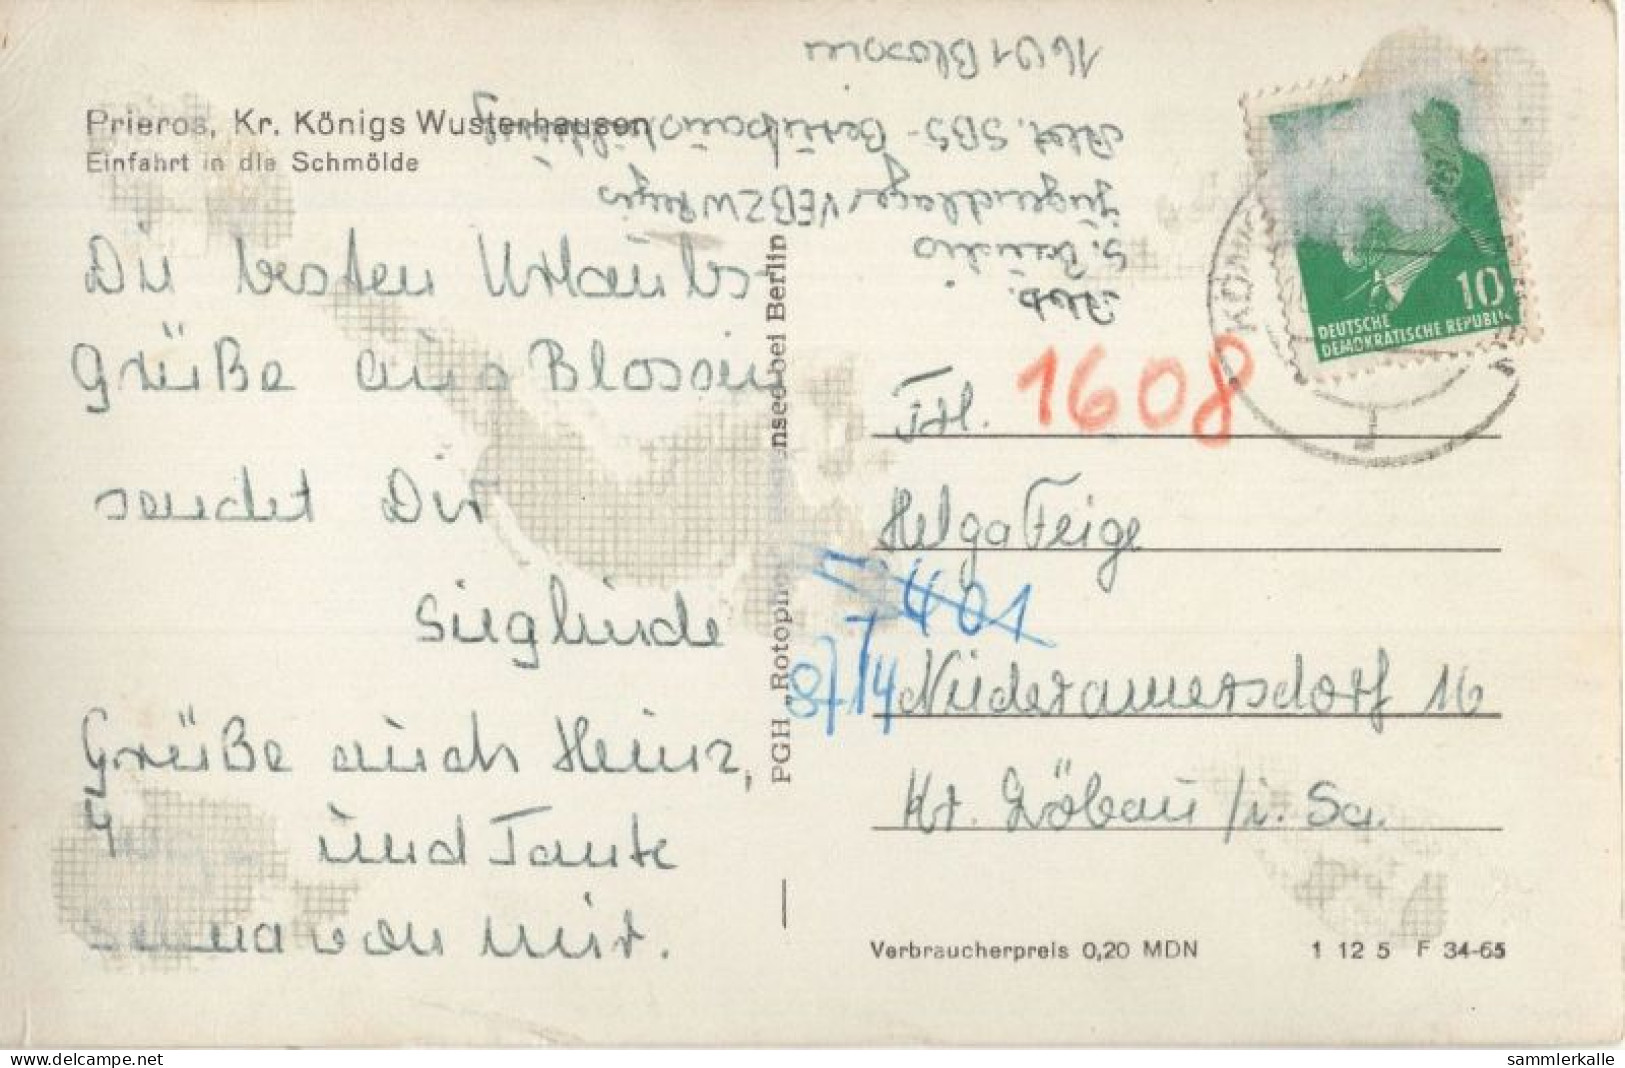 Prieros, Kr. Königs Wusterhausen
Einfahrt in die Schmölde
Die besten Urlaubs-
grüße aus Blossin
sendet Dir
Sieglinde
Grüße auch Heinz,
und Tante
von mir.
PGH „Rotophot
nsee bei Berlin
Abs.
S.
Jugendlager VEB ZW Regis
Abt. SBS-
1601 Blossin
DEUTSCHE
DEMOKRATISCHE REPUBLIK
10
KÖNIG
Frl.
1608
Helga Feige
401
8714
Niedercunnersdorf 16
Kr. Löbau / i. Sa.
Verbraucherpreis 0,20 MDN
1 12 5 F 34-65
delcampe.net
sammlerkalle